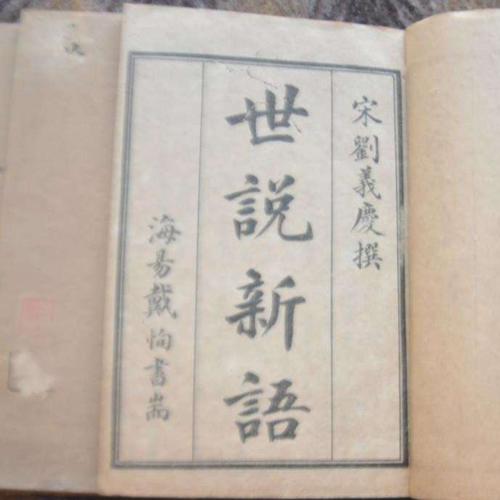 宋劉義慶撰
世説新語
海昜戴恂書耑